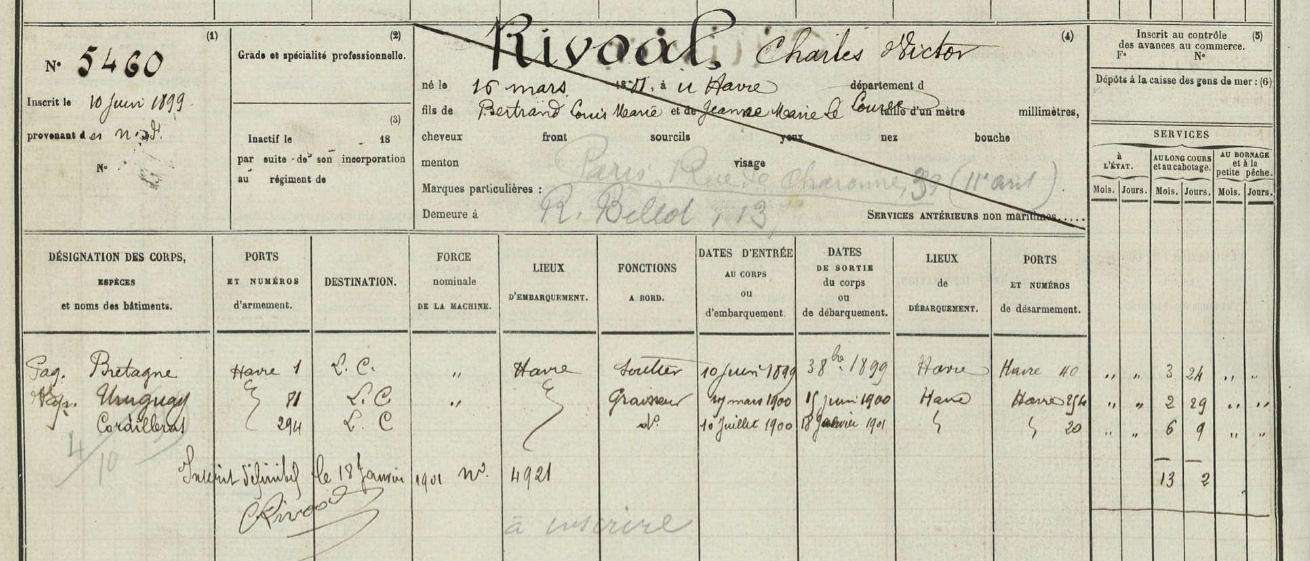 (1) (2) Rivoal, Charles Victor (4) Inscrit au contrôle (5)
des avances au commerce.
N° 5460 Grade et spécialité professionnelle. Fo No
né le 16 mars 18 au Havre département d
Dépôts à la caisse des gens de mer : (6)
Inscrit le 10 Juin 1899 à fils de Bertrand Louis Marie et de Jeanne Marie Le taille d'un mètre millimètres,
provenant des (3) SERVICES
N° Inactif le 18 cheveux front sourcils yeux nez bouche
par suite de son incorporation menton visage
à L'ÉTAT. AU LONG COURS et au cabotage. AU BORNAGE et à la petite pêche.
au régiment de Paris, Rue de Charonne, 39 (11e arrt)
Marques particulières : Mois. Jours. Mois. Jours. Mois. Jours.
Demeure à R. Bellot, 13 SERVICES ANTÉRIEURS non maritimes.....
DÉSIGNATION DES CORPS, ESPÈCES et noms des bâtiments.
PORTS ET NUMÉROS d'armement.
DESTINATION.
FORCE nominale DE LA MACHINE.
LIEUX D'EMBARQUEMENT.
FONCTIONS A BORD.
DATES D'ENTRÉE AU CORPS ou d'embarquement
DATES DE SORTIE du corps ou de débarquement.
LIEUX de DÉBARQUEMENT.
PORTS ET NUMÉROS de désarmement.
Paq. Bretagne Havre 1 L. C. " Havre Soutier 10 juin 1899 3 8bre 1899 Havre Havre 40 " " 3 24 " "
Uruguay 81 L. C. " Graisseur mars 1900 15 juin 1900 Havre Havre 254 " " 2 29 " "
Cordilleras 294 L. C do 10 Juillet 1900 18 Janvier 1901 20 " " 6 9 " "
4/10
13 2
Inscrit définitif le 18 Janvier 1901 no. 4921
CRivoal
à inscrire